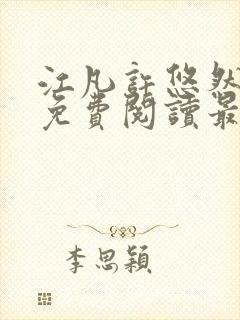 江凡許悠然
免費閱讀最
李思穎